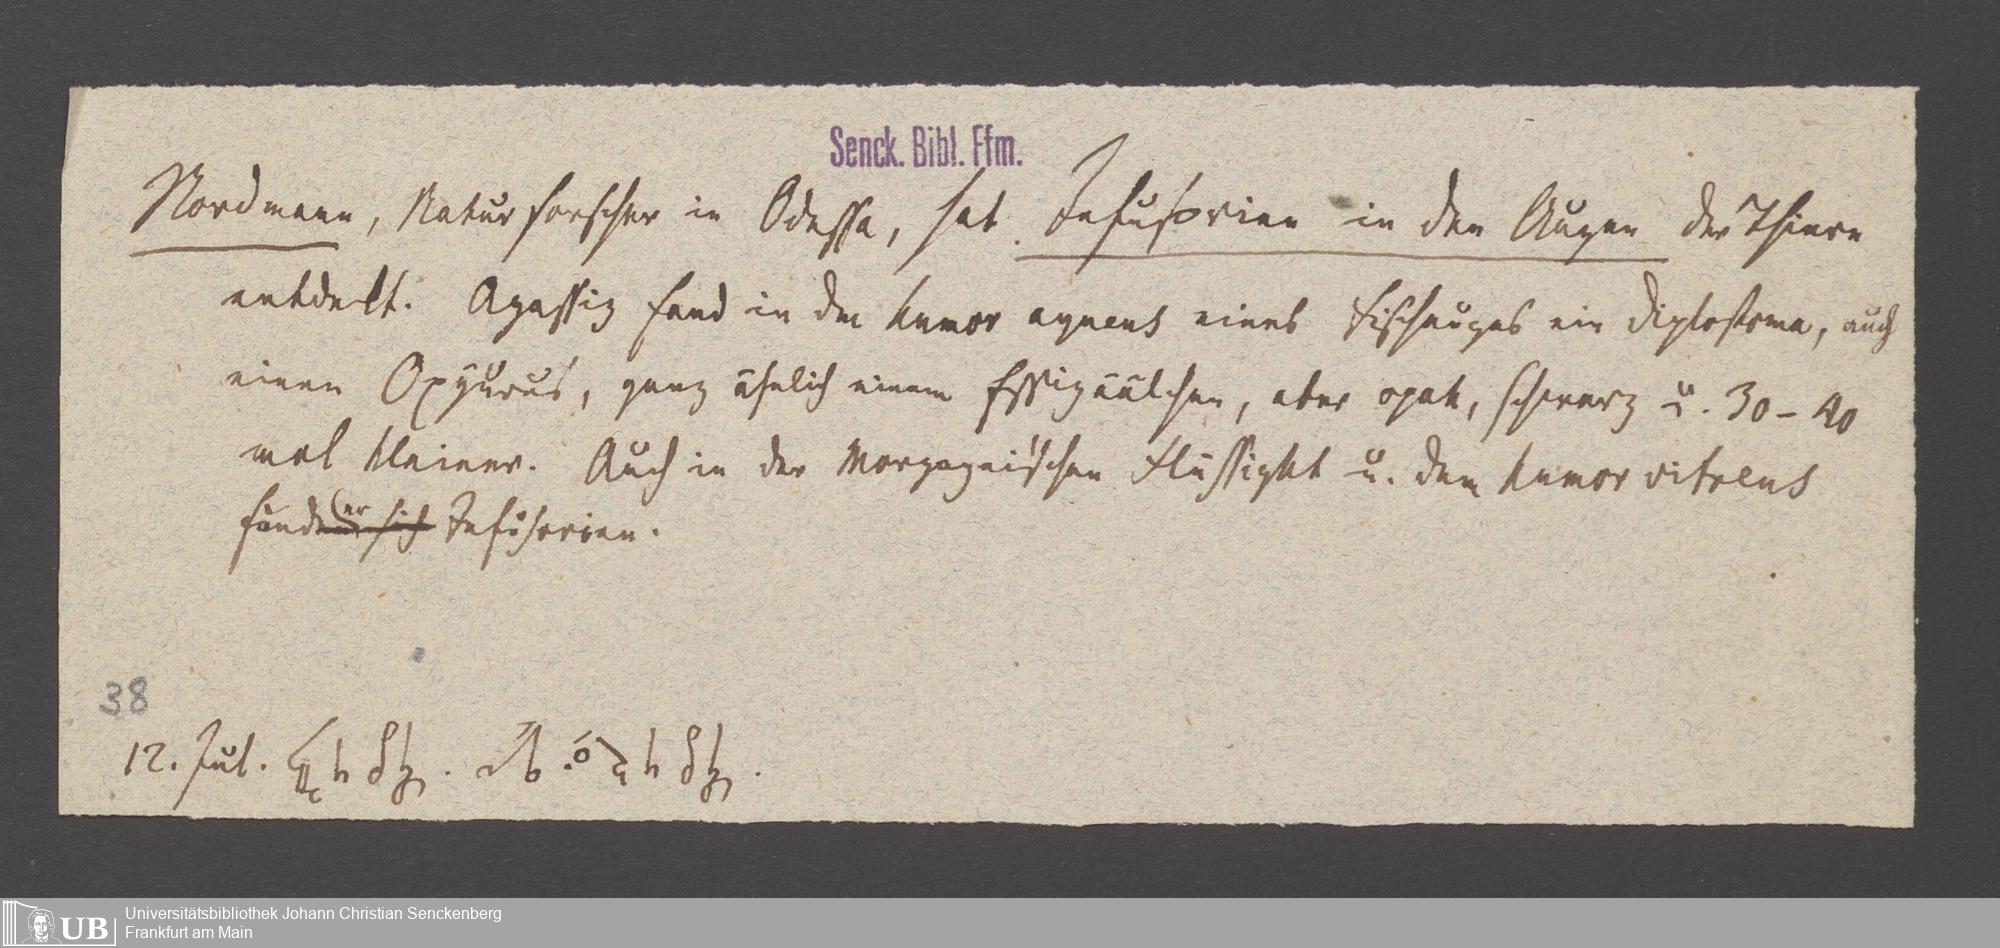 Senck. Bibl. Ffm.
Nordmann, Naturforscher in Odessa, hat Infusorien in den Augen der Thiere
entdekt. Agassiz fand in dem humor aqueus eines Fischauges ein Diplostoma, auch
einen Oxyurus, ganz ähnlich einem Essigäälchen, aber opak, schwarz u. 30-40
mal kleiner. Auch in der Morgagnischen Flüssigkt u. dem humor vitreus
fand er sich Infusorien.
38
12. Jul.
UB
Universitätsbibliothek Johann Christian Senckenberg
Frankfurt am Main